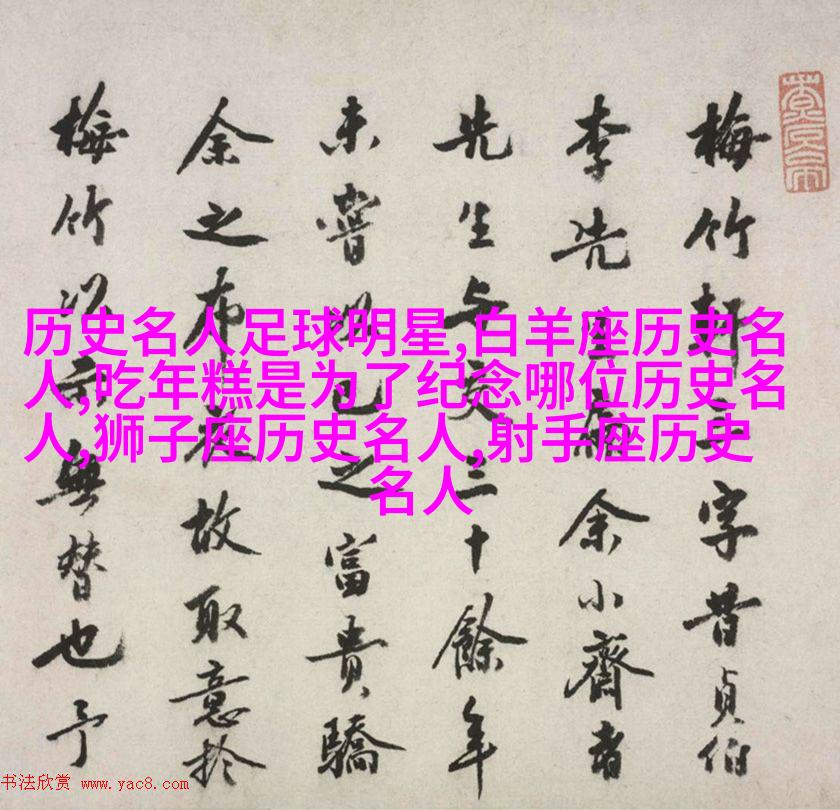 梅竹邨三字昔貞伯
李先生扁余小齋者
先生与交三十餘年
未嘗以己之富貴驕
余之布故取意於
梅竹以示無替也予
历史名人足球明星,白羊座历史名
人,吃年糕是为了纪念哪位历史名
人,狮子座历史名人,射手座历史
名人
书法欣赏 www.yac8.com